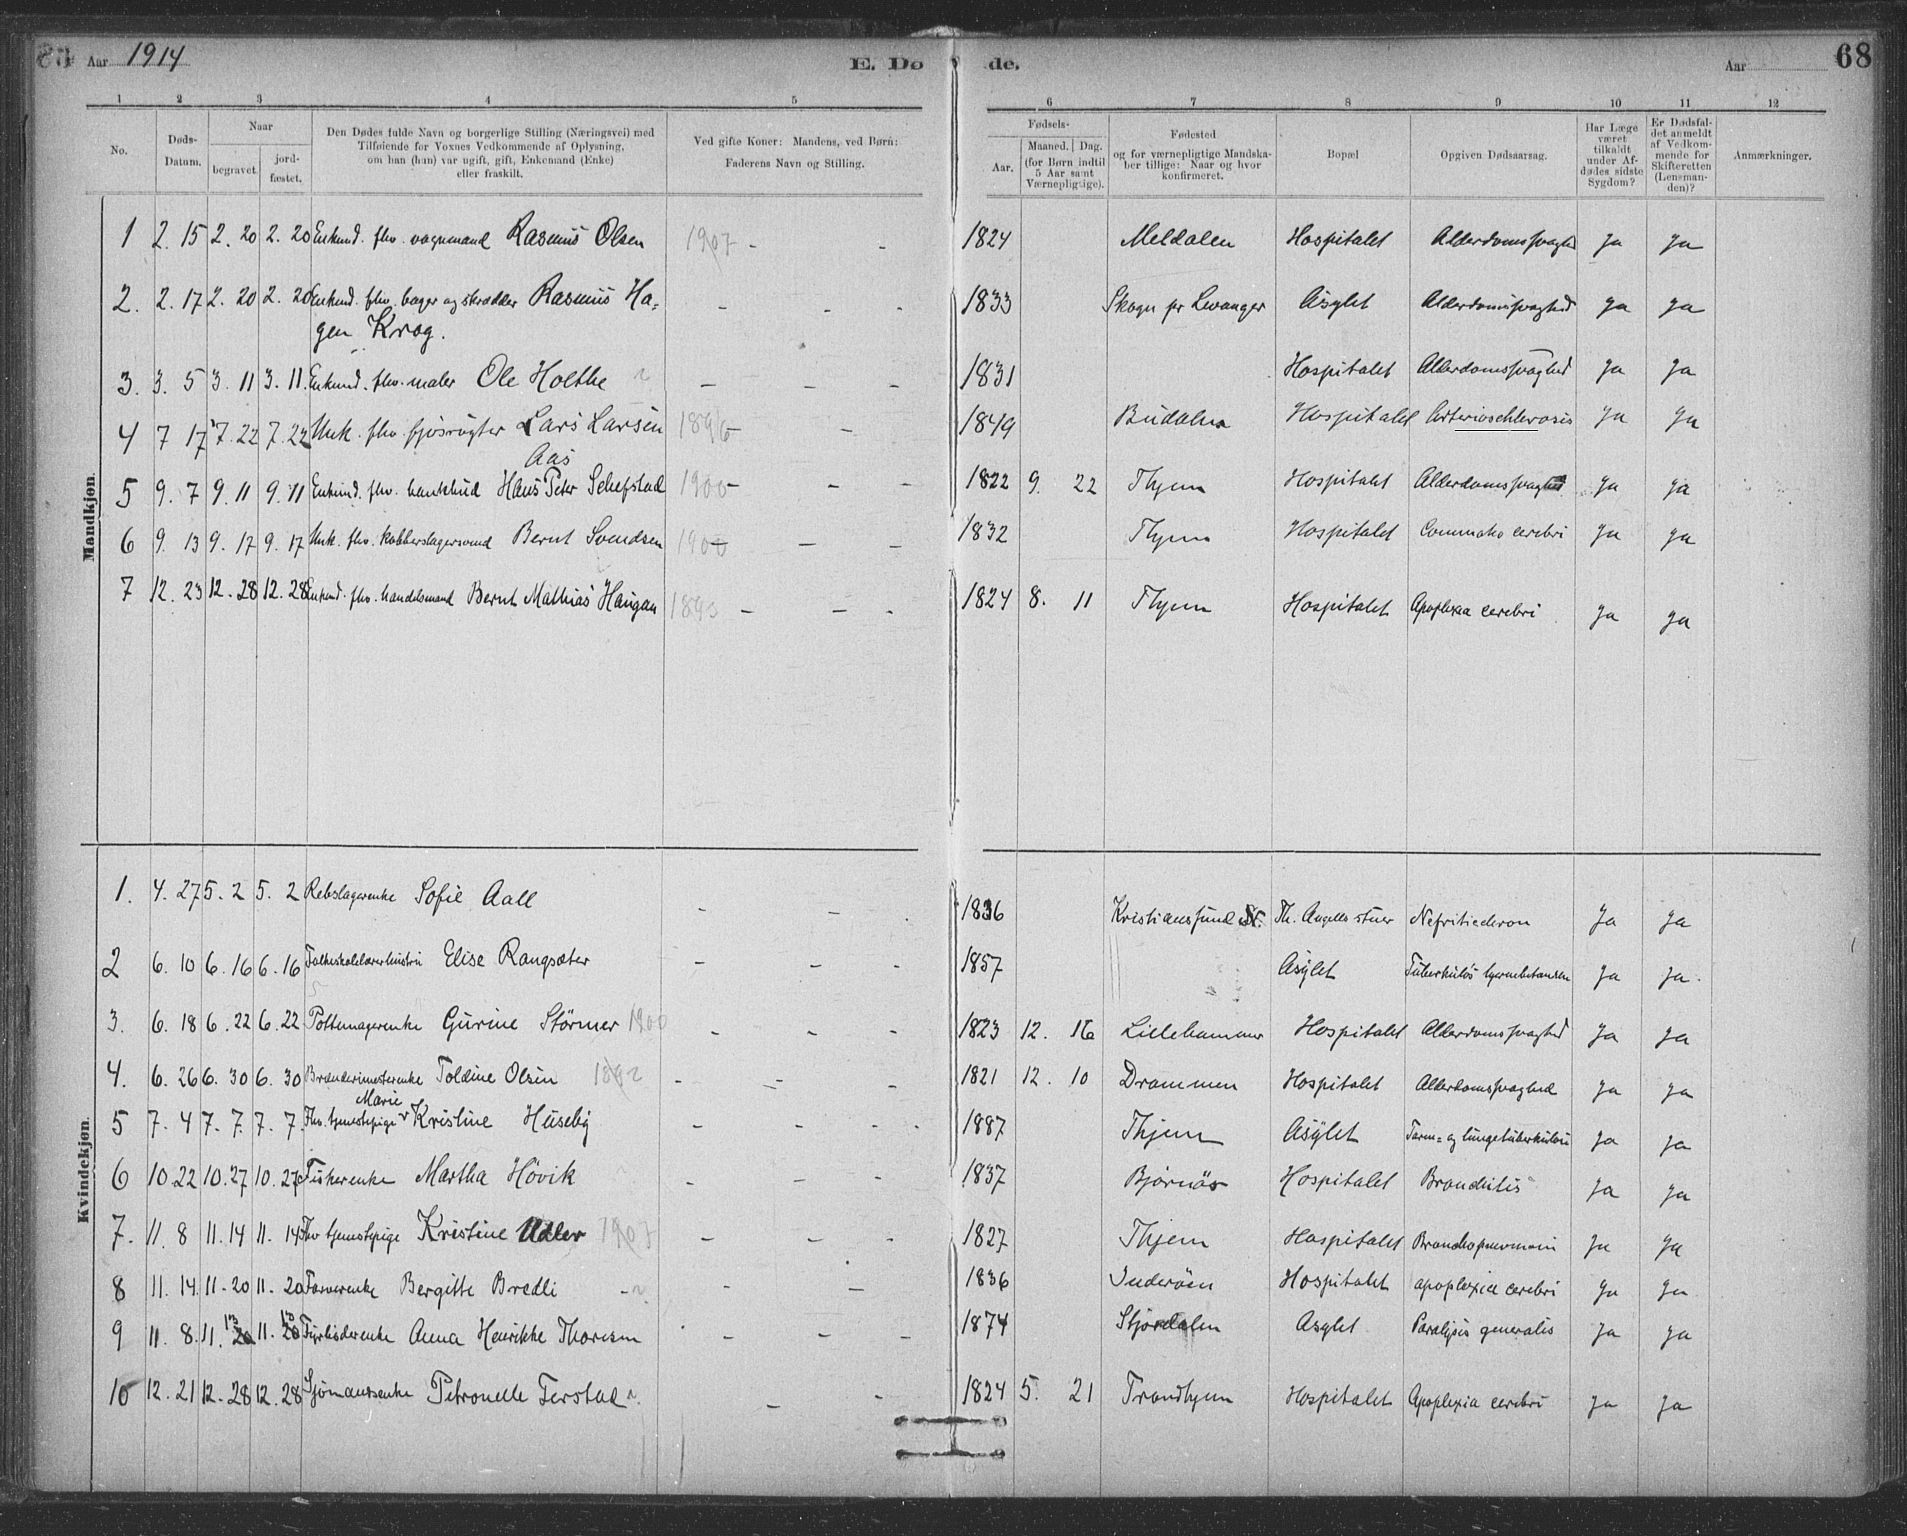 Aar 1914
E. Dø de.
Aar
68
1 2 3 4 5 6 7 8 9 10 11 12
No.
Døds-
Datum.
Naar
begravet.
jord-
fæstet.
Den Dødes fulde Navn og borgerlige Stilling (Næringsvei) med
Tilføiende for Voxnes Vedkommende af Oplysning,
om han (hun) var ugift, gift, Enkemand (Enke)
eller fraskilt.
Ved gifte Koner: Mandens, ved Børn:
Faderens Navn og Stilling.
Fødsels-
Aar.
Maaned. Dag.
(for Børn indtil
5 Aar samt
Værnepligtige).
Fødested
og for værnepligtige Mandska-
ber tillige: Naar og hvor
konfirmeret.
Bopæl
Opgiven Dødsaarsag.
Har Læge
været
tilkaldt
under Af-
dødes sidste
Sygdom?
Er Dødsfal-
det anmeldt
af Vedkom-
mende for
Skifteretten
(Lensman-
den)?
Anmærkninger.
Mandkjøn.
1 2. 15 2. 20 2. 20 Enkmd. fhv. vognmand Rasmus Olsen 1907 - - 1824 Meldalen Hospitalet Alderdomssvaghed Ja Ja
2. 2. 17 2. 20 2. 20 Enkmd. fhv. bager og skrædder Rasmus Ha- - - - 1833 Skogn pr Levanger Asylet Alderdomssvaghed Ja Ja
gen Krog.
3. 3. 5 3. 11 3. 11. Enkmd. fhv. maler Ole Holthe - - - 1831 Hospitalet Alderdomssvaghed Ja Ja
4 7 17 7. 22 7. 22 Unk. fhv. fjøsrøgter Lars Larsen 1896 - - 1849 Budalen Hospitalet Arterioschlerosis Ja Ja
Aas
5 9. 7 9. 11 9. 11 Enkmd. fhv. Hans Peter Schefstad 1900 - - - 1822 9. 22 Thjem Hospitalet Alderdomssvaghed Ja Ja
6 9. 13 9. 17 9. 17 Unk. fhv. kobberslagersvend Bernt Svendsen 1900 - - - 1832 Thjem Hospitalet Commotio cerebri Ja Ja
7 12. 23 12. 28 12. 28 Enkmd. fhv. handelsmand Bernt Mathias Haugan 1893 - - - 1824 8. 11 Thjem Hospitalet Apoplexia cerebri Ja Ja
Kvindekjøn.
1. 4. 27 5. 2 5. 2 Rebslagerenke Sofie Aall - - 1836 Kristianssund N. Th. Angells stuer Ja Ja
2 6. 10 6. 16 6. 16 Folkeskolelærerhustru Elise Rangsæter - - - 1857 Asylet Tuberkuløs hjernebetændelse Ja Ja.
3. 6. 18 6. 22 6. 22 Pottemagerenke Gurine Störmer 1900 - - - 1823 12. 16 Lillehammer Hospitalet Alderdomssvaghed Ja Ja
4. 6. 26 6. 30 6. 30 Brænderimesterenke Toldine Olsen 1892 - - - 1821 12. 10 Drammen Hospitalet Alderdomssvaghed Ja Ja
Marie
5 7. 4 7. 7. 7. 7. Fhv. tjenestepige Kristine Huseby - - - 1887 Thjem Asylet Tarm- og lungetuberkulose Ja Ja
6 10. 22 10. 27 10. 27 Fiskerenke Martha Hövik - - - 1837 Bjørnör Hospitalet Bronchitis Ja Ja
7. 11. 8 11. 14 11. 14 Fhv tjenestepige Kristine Udler 1907 - - - 1827 Thjem Hospitalet Bronchopneumoni Ja Ja
8 11. 14. 11. 20 11. 20 Farverenke Bergitte Bredli - - 1836 Inderöen Hospitalet apoplexia cerebri Ja Ja
9 11. 8. 11. 13 20 11. 13 20 Fyrbøderenke Anna Henrikke Thoresen - - - 1874 Stjørdalen Asylet Paralysis generalis Ja Ja
10 12. 21 12. 28 12. 28 Sjömandsenke Petronelle Ferstad - - 1824 5. 21 Trondhjem Hospitalet Apoplexia cerebri Ja Ja